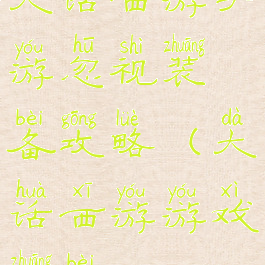 大话西游
yóu hū shì zhuāng
游忽视装
bèi gōng lüè dà
备攻略（大
huà xī yóu yóu xì
话西游游戏
zhuāng bèi